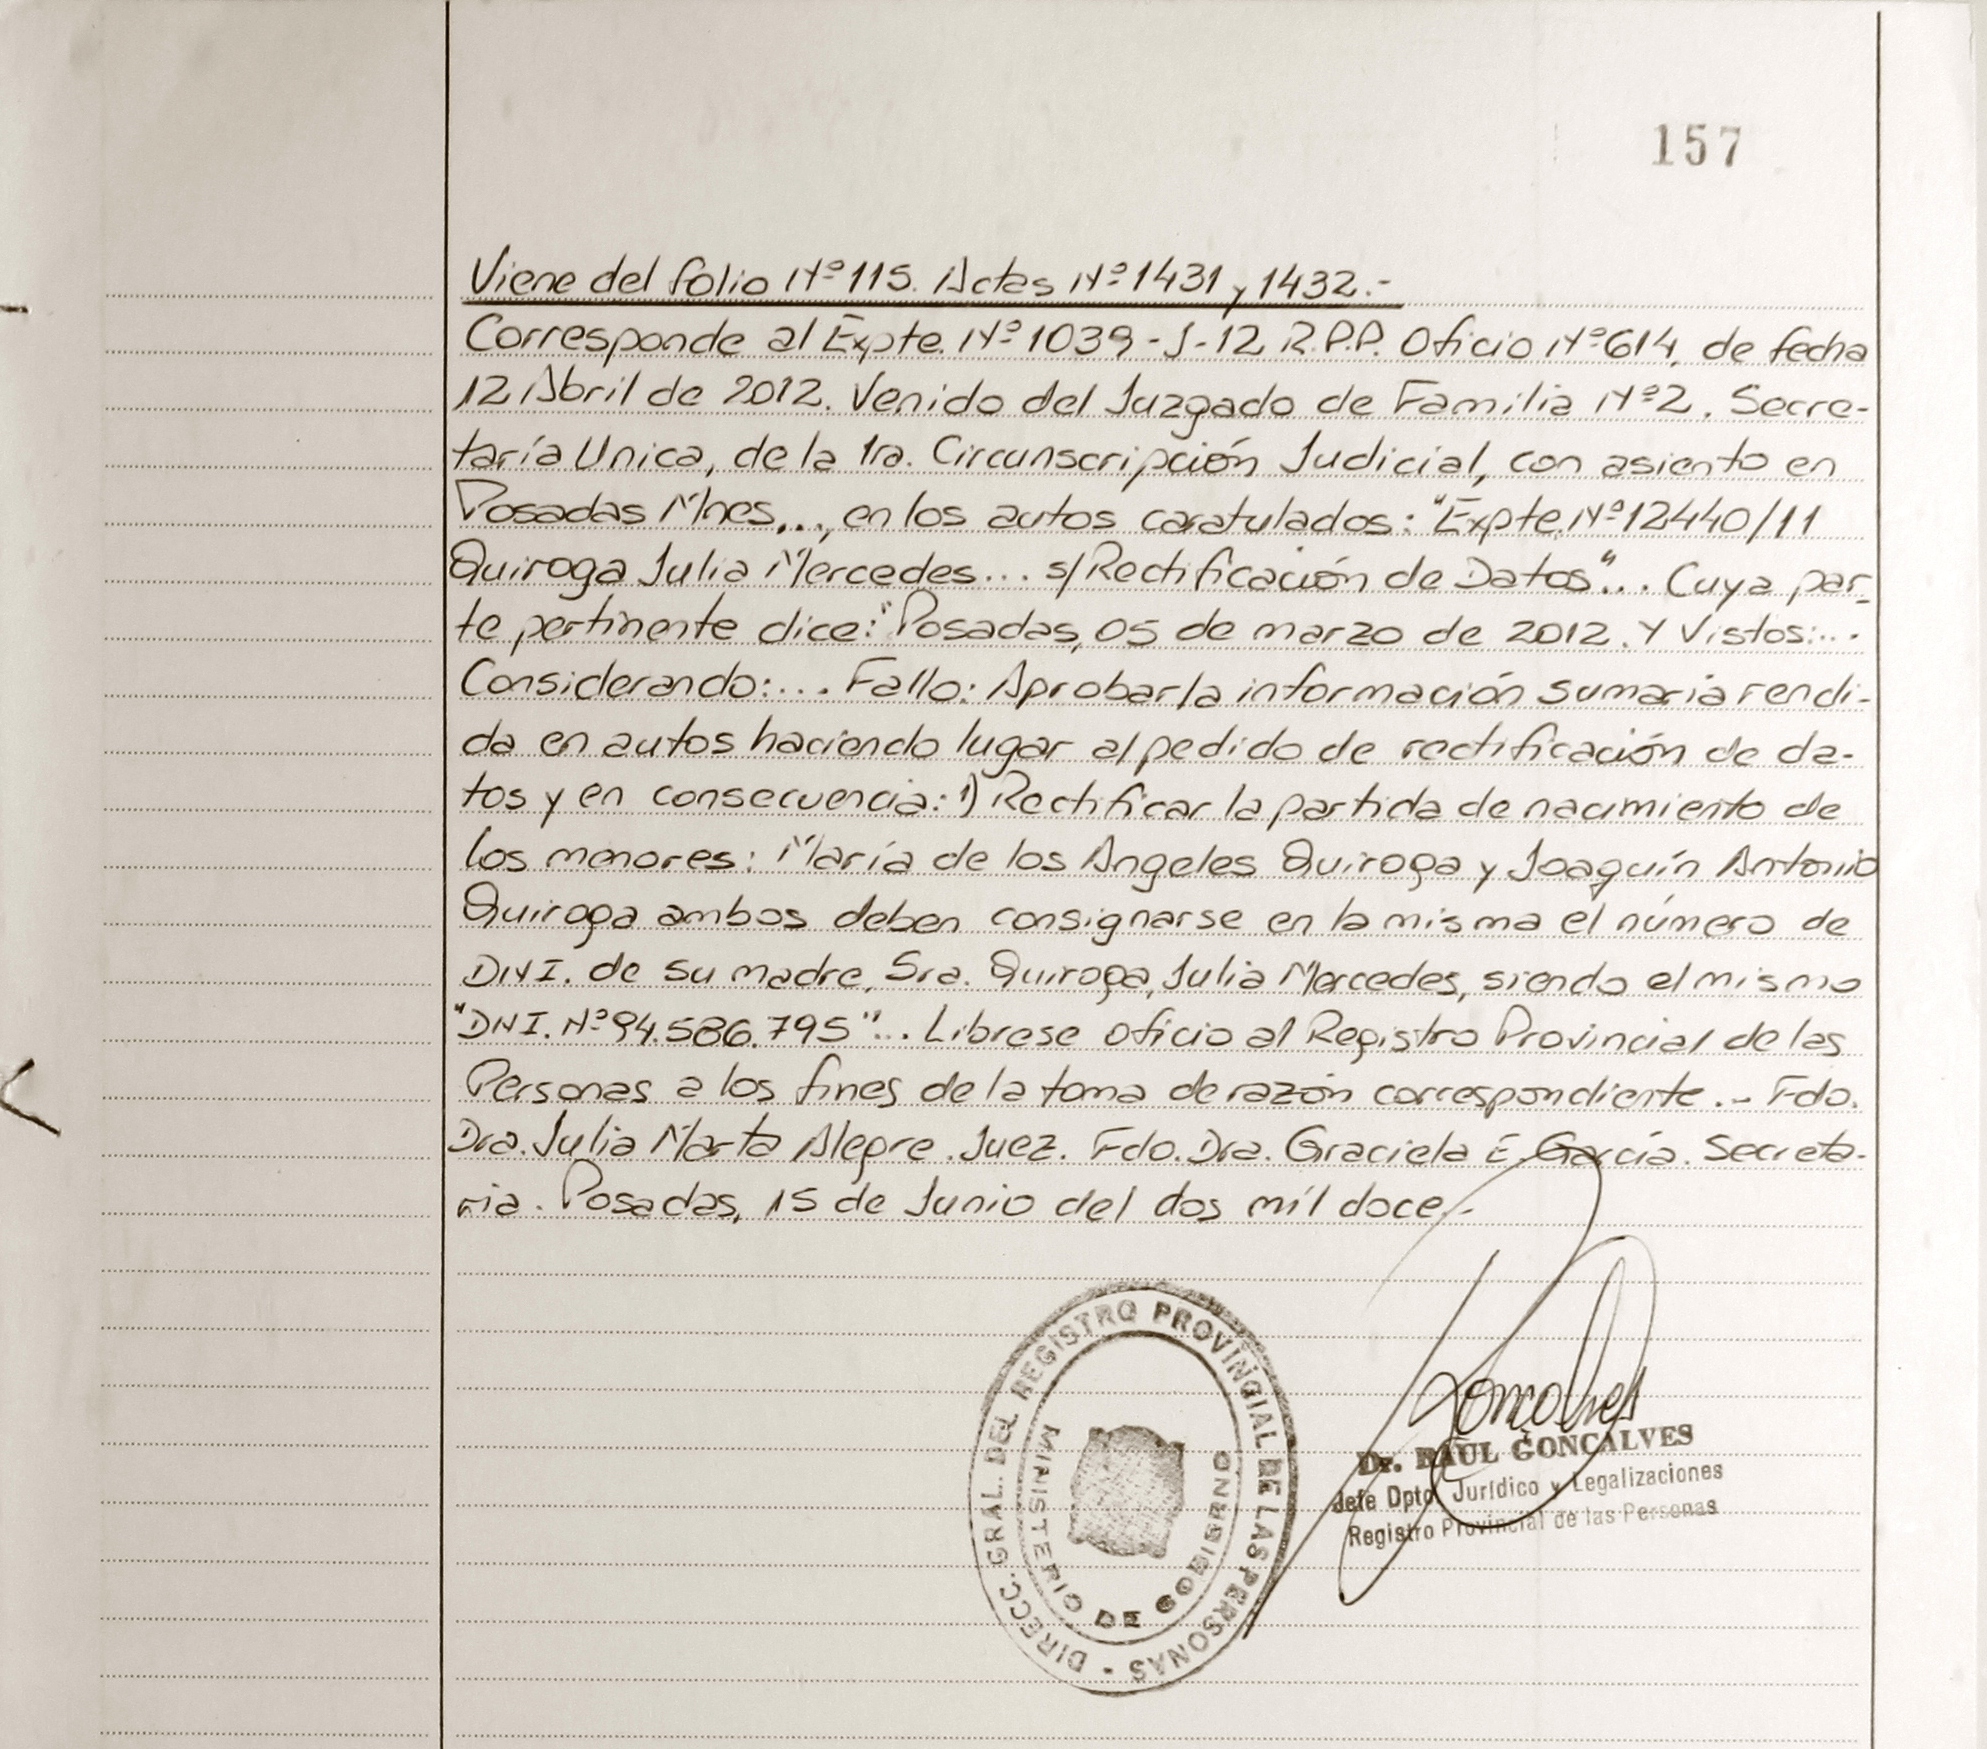 157
Viene del folio Nº 115. Actas Nº 1431 y 1432.-
Corresponde al Expte. Nº 1039-J-12 R.P.P. Oficio Nº 614, de fecha
12 Abril de 2012. Venido del Juzgado de Familia Nº 2. Secre-
taría Unica, de la 1ra. Circunscripción Judicial, con asiento en
Posadas Mnes..., en los autos caratulados: "Expte. Nº 12440/11
Quiroga Julia Mercedes... s/Rectificación de Datos"... Cuya par-
te pertinente dice: "Posadas, 05 de marzo de 2012. Y Vistos:...
Considerando:... Fallo: Aprobar la información sumaria rendi-
da en autos haciendo lugar al pedido de rectificación de da-
tos y en consecuencia: 1) Rectificar la partida de nacimiento de
los menores: María de los Angeles Quiroga y Joaquín Antonio
Quiroga ambos deben consignarse en la misma el número de
DNI. de su madre, Sra. Quiroga, Julia Mercedes, siendo el mismo
"DNI. Nº 94.586.795"... Librese oficio al Registro Provincial de las
Personas a los fines de la toma de razón correspondiente.- Fdo.
Dra. Julia Marta Alegre. Juez. Fdo. Dra. Graciela E. García. Secreta-
ria. Posadas, 15 de Junio del dos mil doce.-
DIRECC. GRAL. DEL REGISTRO PROVINCIAL DE LAS PERSONAS -
MINISTERIO DE GOBIERNO
Goncalves
Dr. RAUL GONCALVES
Jefe Dpto. Jurídico y Legalizaciones
Registro Provincial de las Personas